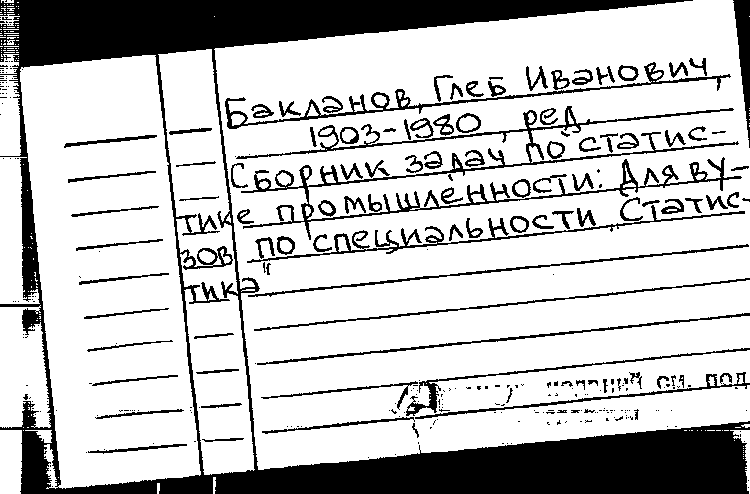 Бакланов, Глеб Иванович,
1903-1980, ред.
Сборник задач по статис-
тике промышленности: Для ву-
зов по специальности „Статис-
тика"
изданий см. под